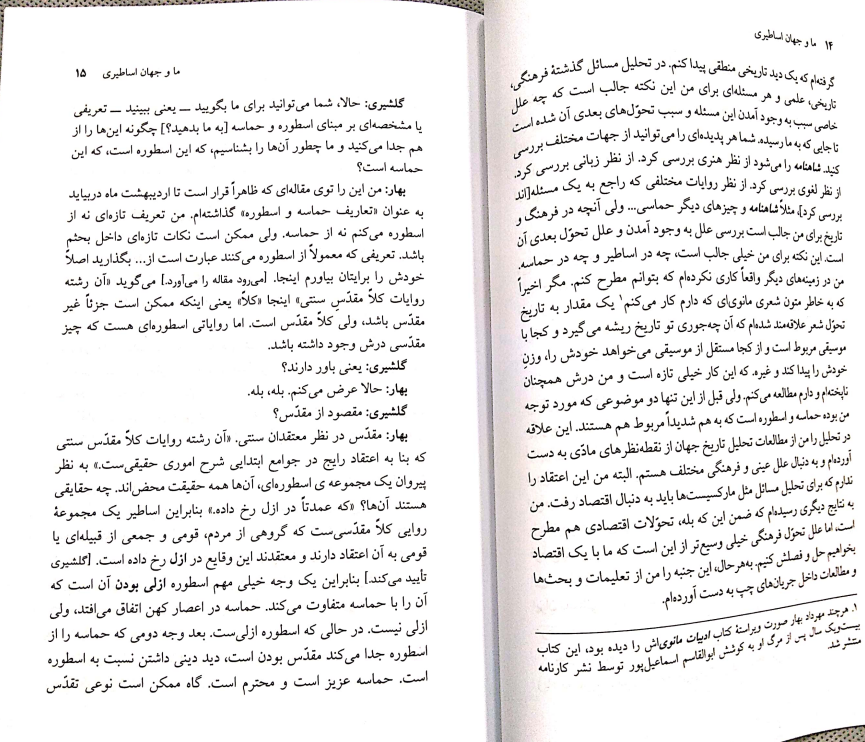 ۱۴ ما و جهان اساطیری
گرفته‌ام که یک دید تاریخی منطقی پیدا کنم. در تحلیل مسائل گذشتهٔ فرهنگی،
تاریخی، علمی و هر مسئله‌ای برای من این نکته جالب است که چه علل
خاصی سبب به وجود آمدن این مسئله و سبب تحوّل‌های بعدی آن شده است
تا جایی که به ما رسیده. شما هر پدیده‌ای را می‌توانید از جهات مختلف بررسی
کنید. شاهنامه را می‌شود از نظر هنری بررسی کرد. از نظر زبانی بررسی کرد.
از نظر لغوی بررسی کرد. از نظر روایات مختلفی که راجع به یک مسئله[‌اند
بررسی کرد]، مثلاً شاهنامه و چیزهای دیگر حماسی... ولی آنچه در فرهنگ و
تاریخ برای من جالب است بررسی علل به وجود آمدن و علل تحوّل بعدی آن
است. این نکته برای من خیلی جالب است، چه در اساطیر و چه در حماسه.
من در زمینه‌های دیگر واقعاً کاری نکرده‌ام که بتوانم مطرح کنم. مگر اخیراً
که به خاطر متون شعری مانوی‌ای که دارم کار می‌کنم۱ یک مقدار به تاریخ
تحوّل شعر علاقه‌مند شده‌ام که آن چه‌جوری تو تاریخ ریشه می‌گیرد و کجا با
موسیقی مربوط است و از کجا مستقل از موسیقی می‌خواهد خودش را، وزنِ
خودش را پیدا کند و غیره. که این کار خیلی تازه است و من درش همچنان
ناپخته‌ام و دارم مطالعه می‌کنم. ولی قبل از این تنها دو موضوعی که مورد توجه
من بوده حماسه و اسطوره است که به هم شدیداً مربوط هم هستند. این علاقه
در تحلیل را من از مطالعات تحلیل تاریخ جهان از نقطه‌نظرهای مادّی به دست
آورده‌ام و به دنبال علل عینی و فرهنگی مختلف هستم. البته من این اعتقاد را
ندارم که برای تحلیل مسائل مثل مارکسیست‌ها باید به دنبال اقتصاد رفت. من
به نتایج دیگری رسیده‌ام که ضمن این که بله، تحوّلات اقتصادی هم مطرح
است، اما علل تحوّل فرهنگی خیلی وسیع‌تر از این است که ما با یک اقتصاد
بخواهیم حل و فصلش کنیم. به‌هرحال، این جنبه را من از تعلیمات و بحث‌ها
و مطالعات داخل جریان‌های چپ به دست آورده‌ام.
۱. هرچند مهرداد بهار صورت ویراستهٔ کتاب ادبیات مانوی‌اش را دیده بود، این کتاب
بیست‌ویک سال پس از مرگ او به کوشش ابوالقاسم اسماعیل‌پور توسط نشر کارنامه
منتشر شد.
ما و جهان اساطیری ۱۵
گلشیری: حالا، شما می‌توانید برای ما بگویید ــ یعنی ببینید ــ تعریفی
یا مشخصه‌ای بر مبنای اسطوره و حماسه [به ما بدهید؟] چگونه این‌ها را از
هم جدا می‌کنید و ما چطور آن‌ها را بشناسیم، که این اسطوره است، که این
حماسه است؟
بهار: من این را توی مقاله‌ای که ظاهراً قرار است تا اردیبهشت ماه دربیاید
به عنوان «تعاریف حماسه و اسطوره» گذاشته‌ام. من تعریف تازه‌ای نه از
اسطوره می‌کنم نه از حماسه. ولی ممکن است نکات تازه‌ای داخل بحثم
باشد. تعریفی که معمولاً از اسطوره می‌کنند عبارت است از... بگذارید اصلاً
خودش را برایتان بیاورم اینجا. [می‌رود مقاله را می‌آورد.] می‌گوید «آن رشته
روایات کلاً مقدّسِ سنتی» اینجا «کلاً» یعنی اینکه ممکن است جزئاً غیر
مقدّس باشد، ولی کلاً مقدّس است. اما روایاتی اسطوره‌ای هست که چیز
مقدّسی درش وجود داشته باشد.
گلشیری: یعنی باور دارند؟
بهار: حالا عرض می‌کنم. بله، بله.
گلشیری: مقصود از مقدّس؟
بهار: مقدّس در نظر معتقدان سنتی. «آن رشته روایات کلاً مقدّس سنتی
که بنا به اعتقاد رایج در جوامع ابتدایی شرح اموری حقیقی‌ست.» به نظر
پیروان یک مجموعه ی اسطوره‌ای، آن‌ها همه حقیقت محض‌اند. چه حقایقی
هستند آن‌ها؟ «که عمدتاً در ازل رخ داده.» بنابراین اساطیر یک مجموعهٔ
روایی کلاً مقدّسی‌ست که گروهی از مردم، قومی و جمعی از قبیله‌ای یا
قومی به آن اعتقاد دارند و معتقدند این وقایع در ازل رخ داده است. [گلشیری
تأیید می‌کند.] بنابراین یک وجه خیلی مهم اسطوره ازلی بودن آن است که
آن را با حماسه متفاوت می‌کند. حماسه در اعصار کهن اتفاق می‌افتد، ولی
ازلی نیست. در حالی که اسطوره ازلی‌ست. بعد وجه دومی که حماسه را از
اسطوره جدا می‌کند مقدّس بودن است، دید دینی داشتن نسبت به اسطوره
است. حماسه عزیز است و محترم است. گاه ممکن است نوعی تقدّس